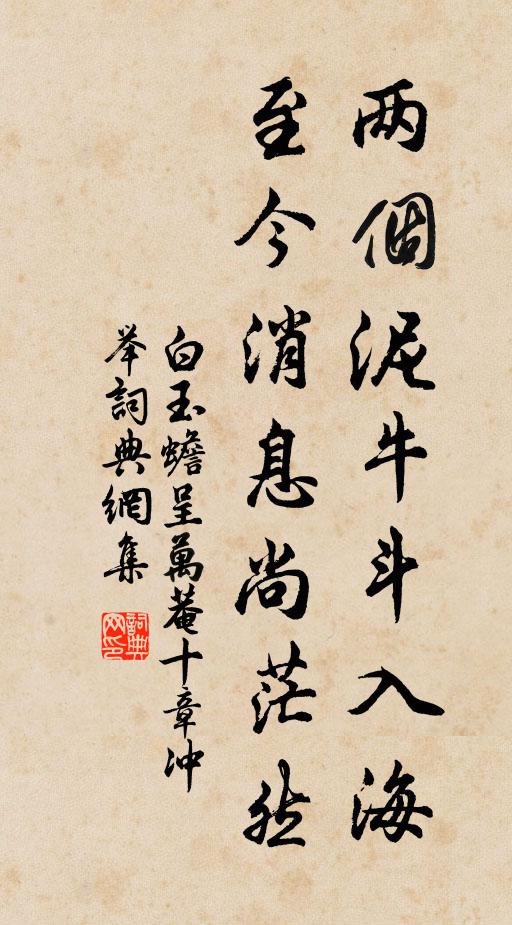 两個泥牛斗入海
至今消息尚茫然
白玉蟾呈萬菴十章冲
举詞典網集
詞典
网印